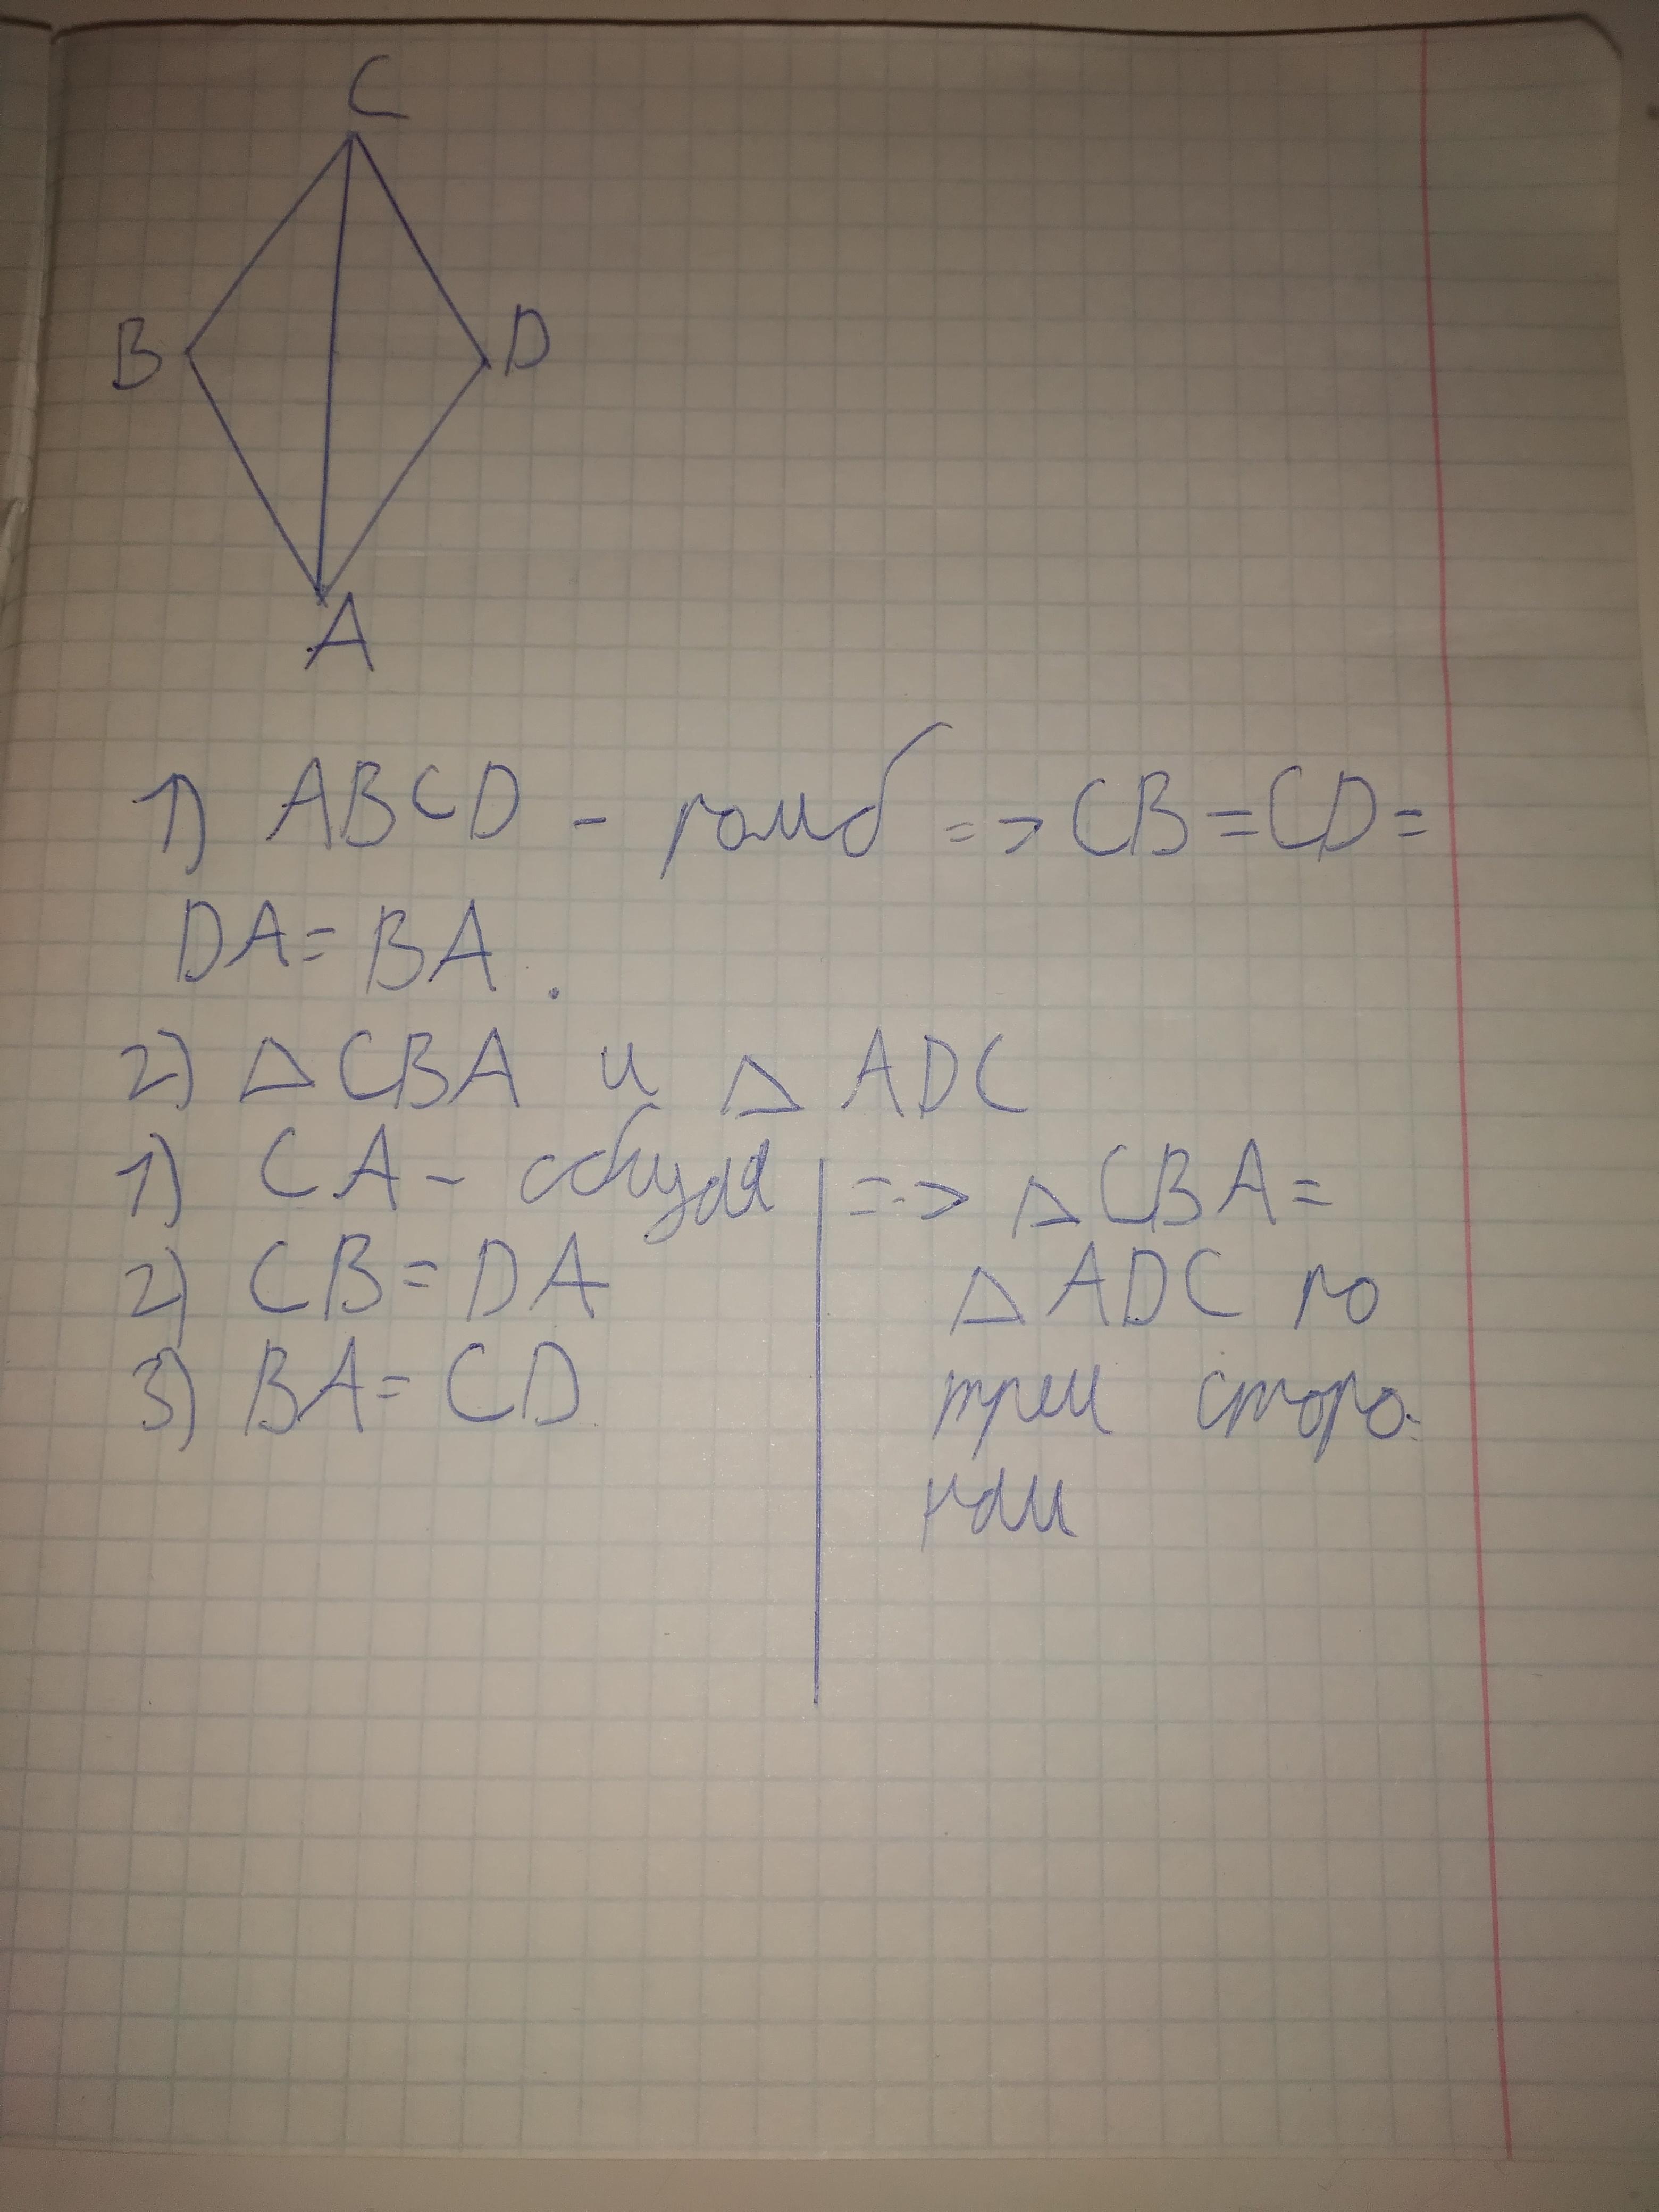 C
B
D
A
1) ABCD - ромб => CB=CD=
DA=BA.
2) △CBA и △ADC
1) CA - общая => △CBA=
2) CB=DA △ADC по
3) BA=CD трем сторо-
нам